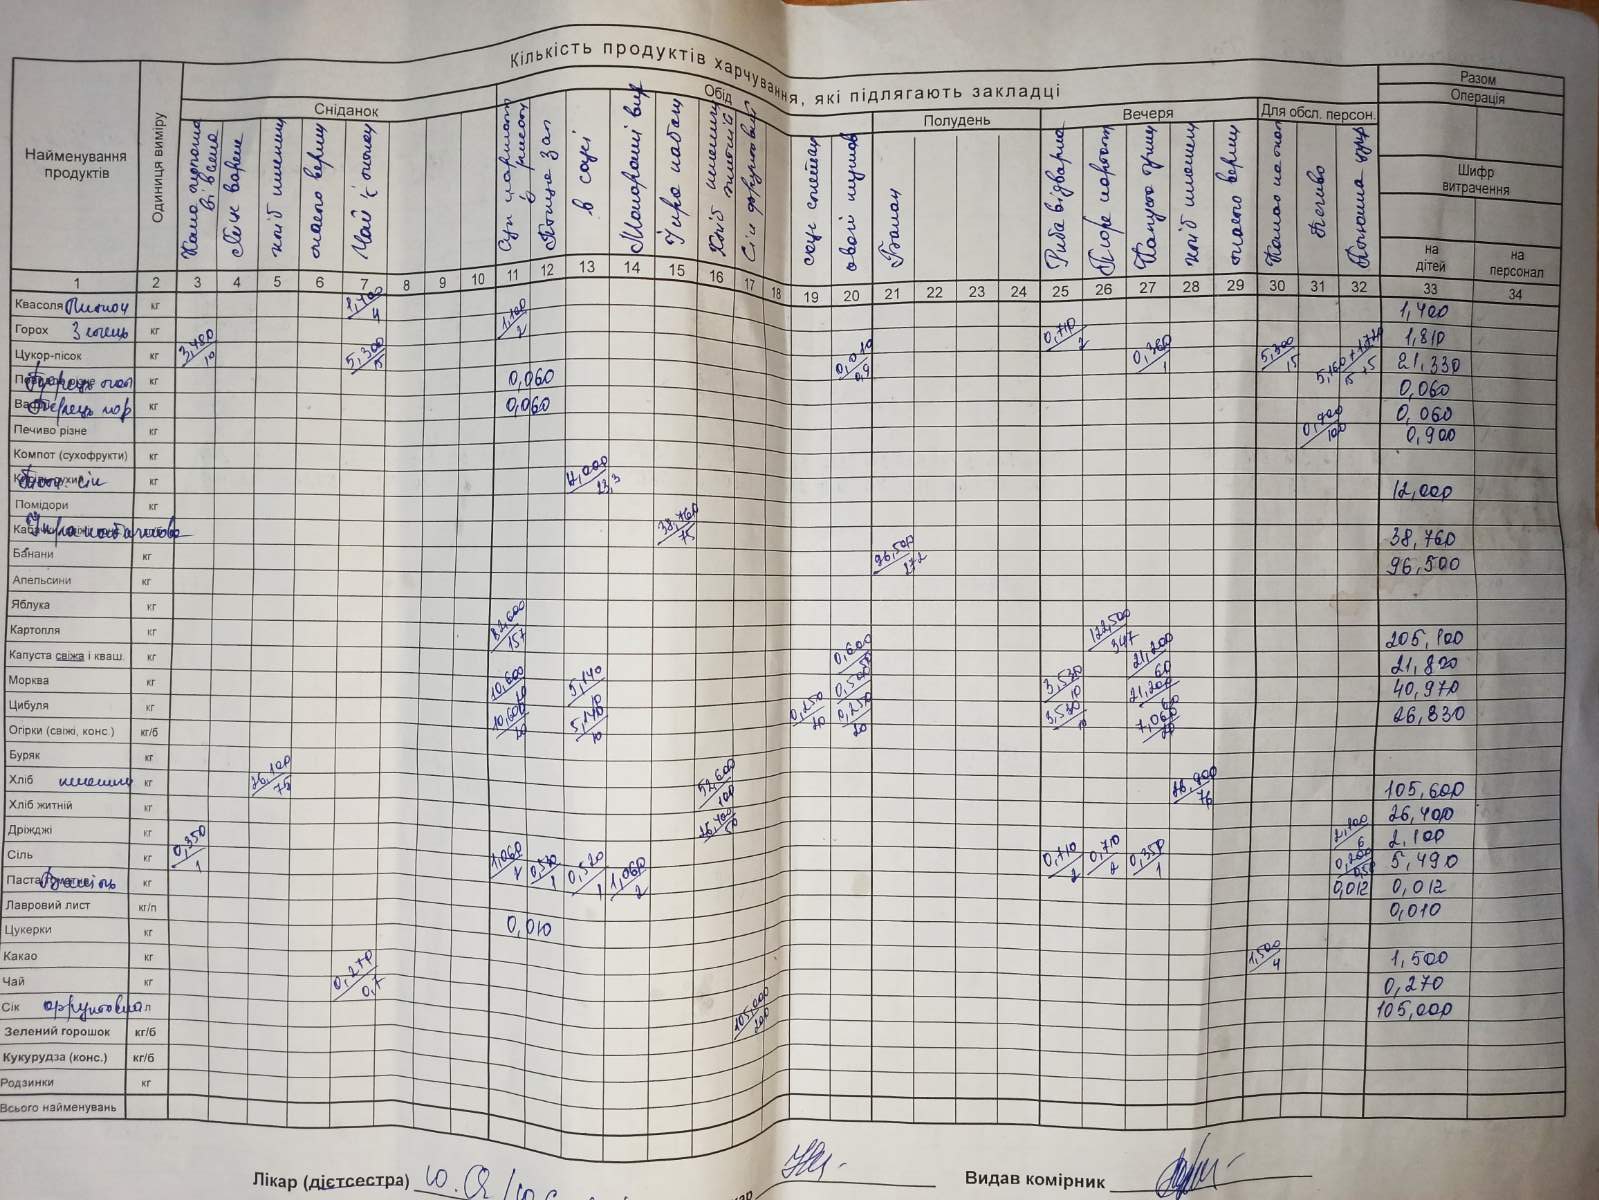 Кількість продуктів харчування, які підлягають закладці
Найменування продуктів
Одиниця виміру
Сніданок
Обід
Полудень
Вечеря
Для обсл. персон.
Разом
Операція
Шифр витрачення
на дітей
на персонал
хліб пшенич
масло верш
Чай з лимон
Птиця зап
в соусі
Макаронні вир
Ікра кабач
Хліб пшенич
житній
Сік фруктовий
Банан
Риба відварна
Пюре картоп
хліб пшенич
масло верш
Печиво
1 2 3 4 5 6 7 8 9 10 11 12 13 14 15 16 17 18 19 20 21 22 23 24 25 26 27 28 29 30 31 32 33 34
Квасоля кг 1,400/4 1,400
Горох кг 1,100/2 0,710/2 1,810
Цукор-пісок кг 3,480/10 5,300/15 0,010/0,9 0,360/1 5,300/15 5,160+1,720/15+5 21,330
кг 0,060 0,060
Перець чор кг 0,060 0,060
Печиво різне кг 0,900/100 0,900
Компот (сухофрукти) кг
кг 12,000/23,3 12,000
Помідори кг
Ікра кабачкова 38,760/75 38,760
Банани кг 96,500/272 96,500
Апельсини кг
Яблука кг
Картопля кг 82,600/157 122,500/347 205,100
Капуста свіжа і кваш. кг 0,600 21,200/60 21,800
Морква кг 10,600/20 5,140/10 0,500 3,530/10 21,200/60 40,970
Цибуля кг 10,600/20 5,140/10 0,250/20 0,250/20 3,530/10 7,060/20 26,830
Огірки (свіжі, конс.) кг/б
Буряк кг
Хліб пшенич кг 26,100/75 52,600/100 26,900/76 105,600
Хліб житній кг 26,400/50 26,400
Дріжджі кг 2,100/6 2,100
Сіль кг 0,350/1 1,060/2 0,520/1 0,520/1 1,060/2 0,710/2 0,710/2 0,350/1 0,200/0,50 5,490
Ванілін кг 0,012 0,012
Лавровий лист кг/п 0,010 0,010
Цукерки кг
Какао кг 1,500/4 1,500
Чай кг 0,270/0,7 0,270
Сік фруктовий л 105,000/200 105,000
Зелений горошок кг/б
Кукурудза (конс.) кг/б
Родзинки кг
Всього найменувань
Лікар (дієтсестра)
Видав комірник